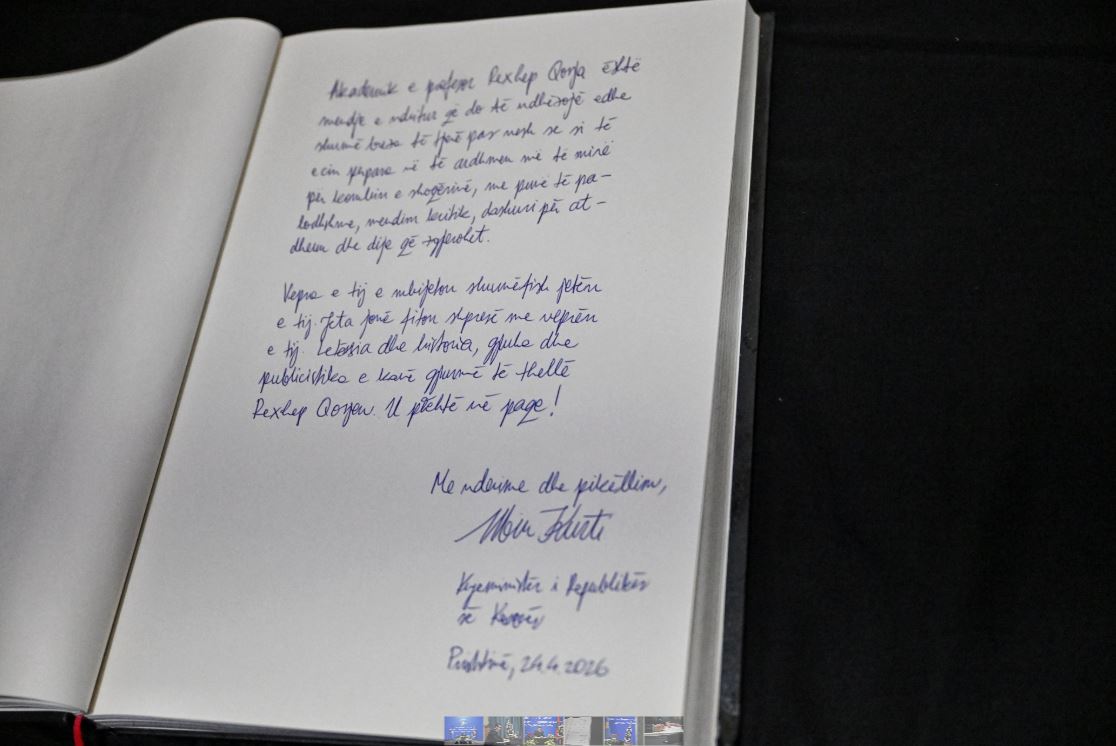 Akademik e profesor Rexhep Qosja është
mendje e ndritur që do të ndihmojë edhe
shumë breza të tjerë pas nesh se si të
ecim përpara në të ardhmen më të mirë
për kombin e shoqërinë, me punë të pa-
lodhshme, mendim kritik, dashuri për at-
dheun dhe dije që zgjerohet.
Vepra e tij e mbijeton shumëfish jetën
e tij. Jeta jonë fiton shpresë me veprën
e tij. Letërsia dhe historia, gjuha dhe
publicistika e kanë gjurmë të thellë
Rexhep Qosjen. U pleht­ë në paqe!
Me nderime dhe pikëllim,
Albin Kurti
Kryeministër i Republikës
së Kosovës
Prishtinë, 24.4.2026